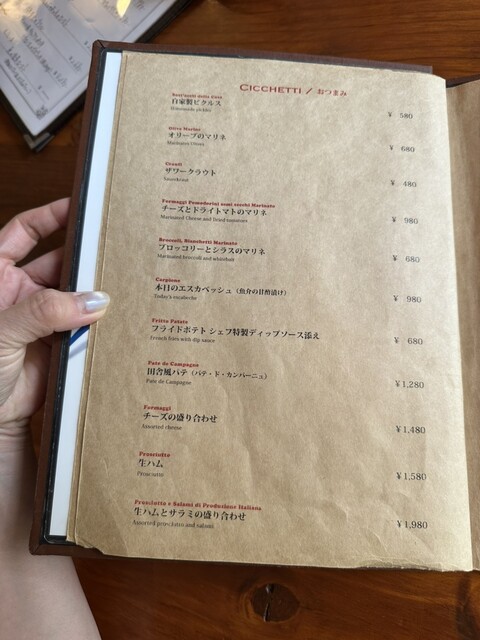 CICCHETTI / おつまみ
Sott'aceti della Casa
自家製ピクルス
Homemade pickles
¥ 580
Olive Marine
オリーブのマリネ
Marinates Olives
¥ 680
Crauti
ザワークラウト
Sauerkraut
¥ 480
Formaggi Pomodorini semi secchi Marinato
チーズとドライトマトのマリネ
Marinated Cheese and Dried tomatoes
¥ 980
Broccoli, Bianchetti Marinato
ブロッコリーとシラスのマリネ
Marinated broccoli and whitebait
¥ 680
Carpione
本日のエスカベッシュ（魚介の甘酢漬け）
Today's escabeche
¥ 980
Fritto Patata
フライドポテト シェフ特製ディップソース添え
French fries with dip sauce
¥ 680
Pate de Campagne
田舎風パテ（パテ・ド・カンパーニュ）
Pate de Campagne
¥1,280
Formaggi
チーズの盛り合わせ
Assorted cheese
¥1,480
Prosciutto
生ハム
Prosciutto
¥1,580
Prosciutto e Salami di Produzione Italiana
生ハムとサラミの盛り合わせ
Assorted prosciutto and salami
¥1,980